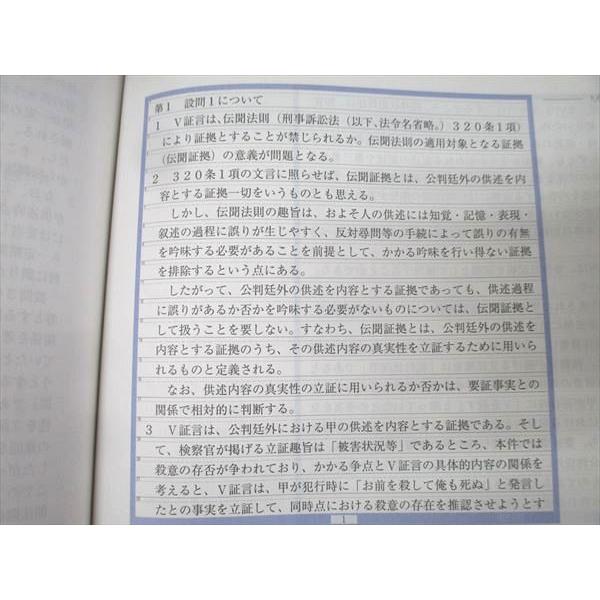 第1　設問1について
1　V証言は、伝聞法則（刑事訴訟法（以下、法令名省略。）320条1項）
により証拠とすることが禁じられるか。伝聞法則の適用対象となる証拠
（伝聞証拠）の意義が問題となる。
2　320条1項の文言に照らせば、伝聞証拠とは、公判廷外の供述を内
容とする証拠一切をいうものとも思える。
しかし、伝聞法則の趣旨は、およそ人の供述には知覚・記憶・表現・
叙述の過程に誤りが生じやすく、反対尋問等の手続によって誤りの有無
を吟味する必要があることを前提として、かかる吟味を行い得ない証拠
を排除するという点にある。
したがって、公判廷外の供述を内容とする証拠であっても、供述過程
に誤りがあるか否かを吟味する必要がないものについては、伝聞証拠と
して扱うことを要しない。すなわち、伝聞証拠とは、公判廷外の供述を
内容とする証拠のうち、その供述内容の真実性を立証するために用いら
れるものと定義される。
なお、供述内容の真実性の立証に用いられるか否かは、要証事実との
関係で相対的に判断する。
3　V証言は、公判廷外における甲の供述を内容とする証拠である。そし
て、検察官が掲げる立証趣旨は「被害状況等」であるところ、本件では
殺意の存否が争われており、かかる争点とV証言の具体的内容の関係を
考えると、V証言は、甲が犯行時に「お前を殺して俺も死ぬ」と発言し
たとの事実を立証して、同時点における殺意の存在を推認させようとす
1